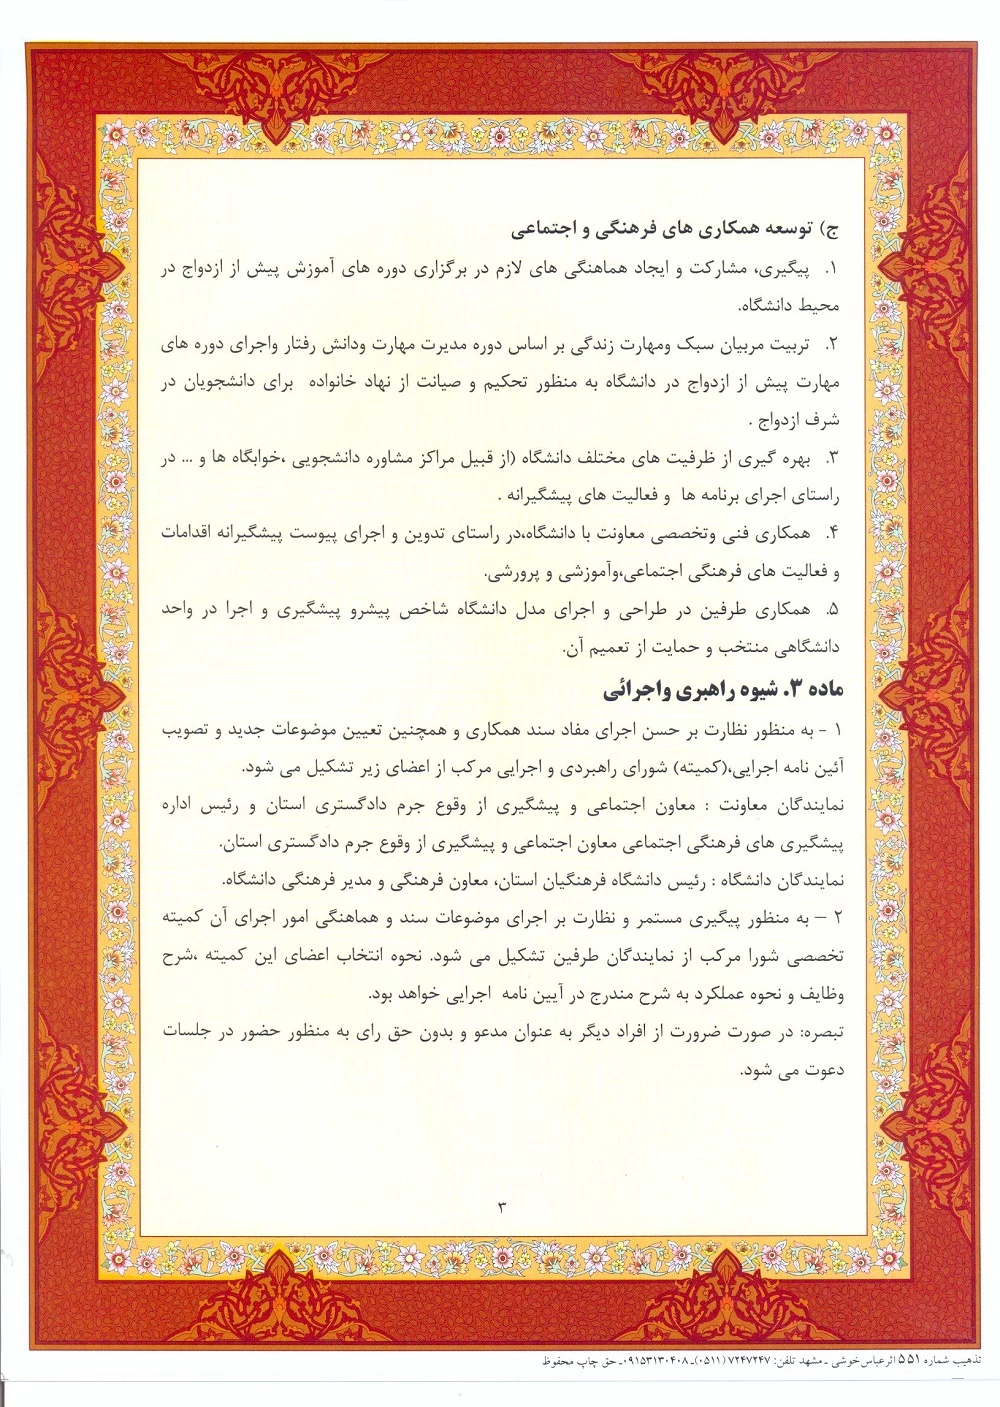 ج) توسعه همکاری های فرهنگی و اجتماعی
۱. پیگیری، مشارکت و ایجاد هماهنگی های لازم در برگزاری دوره های آموزش پیش از ازدواج در
محیط دانشگاه.
۲. تربیت مربیان سبک ومهارت زندگی بر اساس دوره مدیرت مهارت ودانش رفتار واجرای دوره های
مهارت پیش از ازدواج در دانشگاه به منظور تحکیم و صیانت از نهاد خانواده برای دانشجویان در
شرف ازدواج .
۳. بهره گیری از ظرفیت های مختلف دانشگاه (از قبیل مراکز مشاوره دانشجویی ،خوابگاه ها و ... در
راستای اجرای برنامه ها و فعالیت های پیشگیرانه .
۴. همکاری فنی وتخصصی معاونت با دانشگاه،در راستای تدوین و اجرای پیوست پیشگیرانه اقدامات
و فعالیت های فرهنگی اجتماعی،وآموزشی و پرورشی.
۵. همکاری طرفین در طراحی و اجرای مدل دانشگاه شاخص پیشرو پیشگیری و اجرا در واحد
دانشگاهی منتخب و حمایت از تعمیم آن.
ماده ۳. شیوه راهبری واجرائی
۱ - به منظور نظارت بر حسن اجرای مفاد سند همکاری و همچنین تعیین موضوعات جدید و تصویب
آئین نامه اجرایی،(کمیته) شورای راهبردی و اجرایی مرکب از اعضای زیر تشکیل می شود.
نمایندگان معاونت : معاون اجتماعی و پیشگیری از وقوع جرم دادگستری استان و رئیس اداره
پیشگیری های فرهنگی اجتماعی معاون اجتماعی و پیشگیری از وقوع جرم دادگستری استان.
نمایندگان دانشگاه : رئیس دانشگاه فرهنگیان استان، معاون فرهنگی و مدیر فرهنگی دانشگاه.
۲ – به منظور پیگیری مستمر و نظارت بر اجرای موضوعات سند و هماهنگی امور اجرای آن کمیته
تخصصی شورا مرکب از نمایندگان طرفین تشکیل می شود. نحوه انتخاب اعضای این کمیته ،شرح
وظایف و نحوه عملکرد به شرح مندرج در آیین نامه اجرایی خواهد بود.
تبصره: در صورت ضرورت از افراد دیگر به عنوان مدعو و بدون حق رای به منظور حضور در جلسات
دعوت می شود.
۳
تذهیب شماره ۵۵۱ اثرعباس خوشی ـ مشهد تلفن: ۷۲۴۷۲۴۷ (۰۵۱۱)ـ ۰۹۱۵۳۱۳۰۴۰۸ـ حق چاپ محفوظ